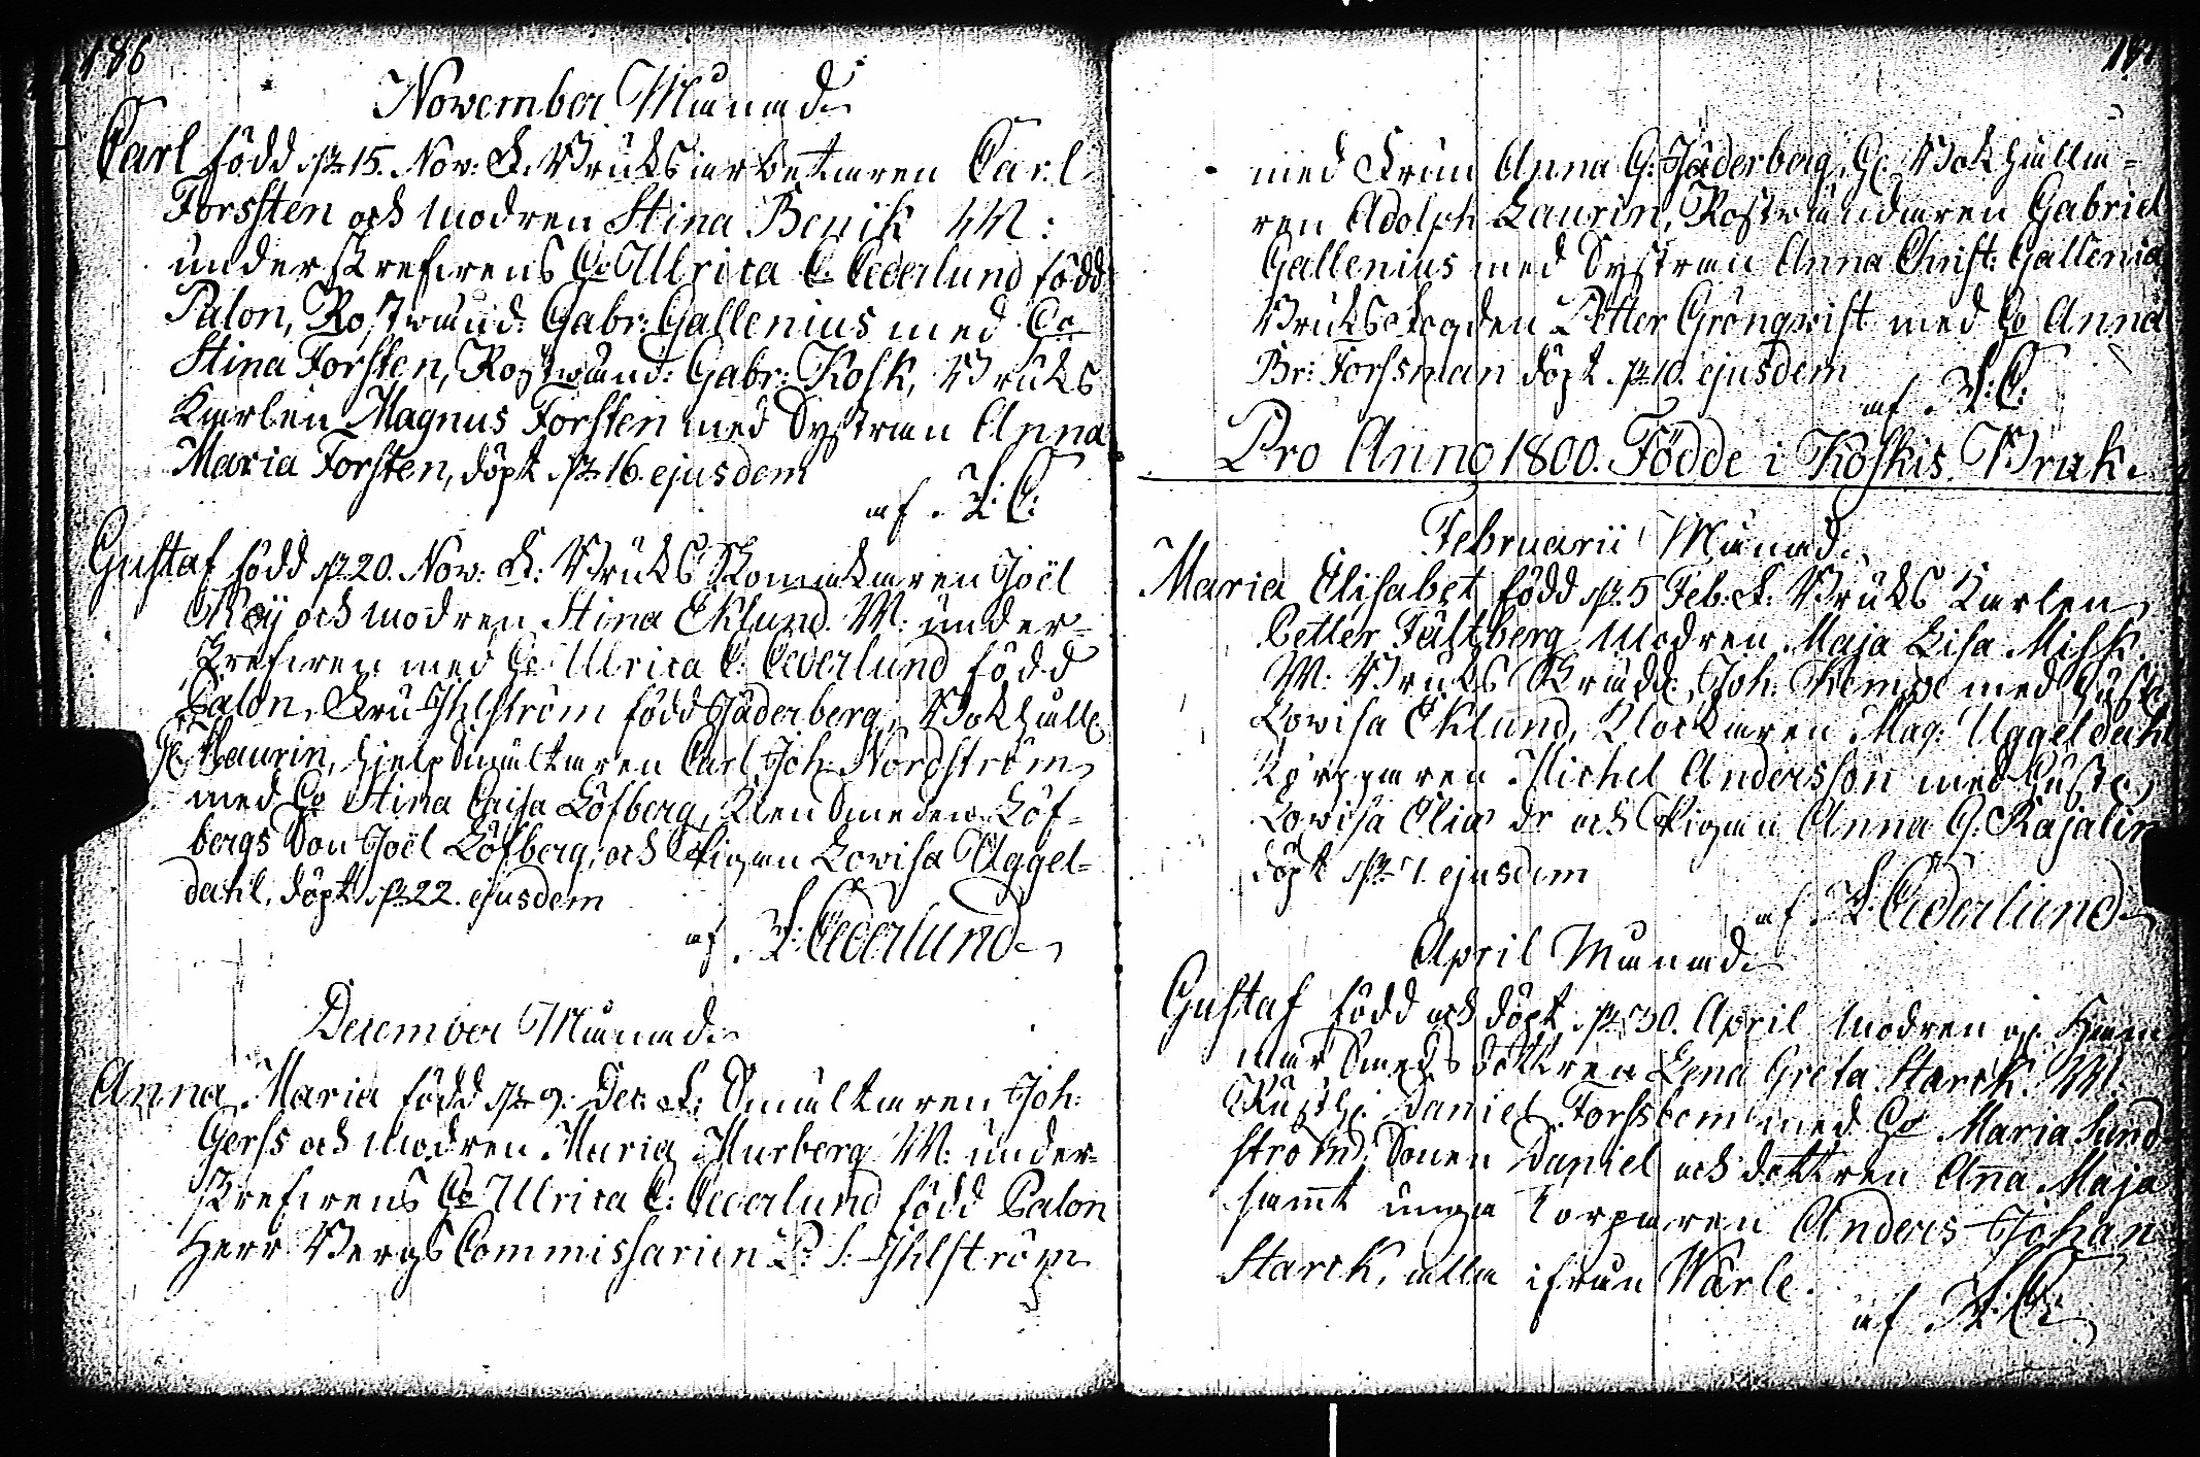 186
November Månad.
Carl född d. 15. Nov: F. Bruksarbetaren Carl
Forssten och modren Stina Benik W:
underskrefvens C. Ulrica C. Cederlund född
Palon, Rostwänd: Gabr: Gallenius med
Stina Forsten, Rostwänd: Gabr: Kosk, Bruks
Karlen Magnus Forsten med Systran Anna
Maria Forsten, döpt d. 16. ejusdem
af F: C:
Gustaf född d. 20. Nov: F: Bruks Skomakaren Joël
och modren Stina Eklund. W: under-
skrefven med Ulrica C. Cederlund född
Calon, Fru Ihlström född Jäderberg, Bokhåll
Laurin, hjelp Smältaren Carl Joh: Nordström
med Stina Caisa Löfberg, Klensmeden Löf-
bergs Son Joël Löfberg, och Pigan Lovisa Uggel-
dahl, döpt d. 22. ejusdem
af F: Cederlund
December Månad.
Anna Maria född d. 9. Dec: F: Smältaren Joh:
Gerss och Modren Maria Murberg W: under-
skrefvens Ulrica C: Cederlund född Calon
Herr Bergs Commissarien P. J. Ihlström
med Frun Anna G: Jäderberg, Bokhålla-
ren Adolph Laurin, Rostwändaren Gabriel
Gallenius med Systran Anna Christ: Gallenia
Bruksfogden Petter Grönqwist med Anna
Br: Forssman döpt d. 10. ejusdem
af F: C:
Pro Anno 1800. Födde i Koskis Bruk.
Februarii Månad.
Maria Elisabet född d. 5 Feb: F: Bruks Karlen
Petter Fältberg Modren Maja Lisa Misk.
W: Bruks Joh: Kempe med hust:
Lovisa Eklund, Klockaren Mag: Uggeldahl
Torpparen Michel Andersson med hustr
Lovisa Elias dr och Pigan Anna G: Rajalin
döpt d. 7. ejusdem
af F: Cederlund
April Månad.
Gustaf född och döpt d. 30. April Modren og. Ham
mar Smeds dottren Lena Greta Starck. W:
Rusth: Daniel Forssbom med Maria Sund
ström, Sonen Daniel och dottren Ana Maja
samt unga Torparen Anders Johan
Starck, alla ifrån Wärle.
af F: C: